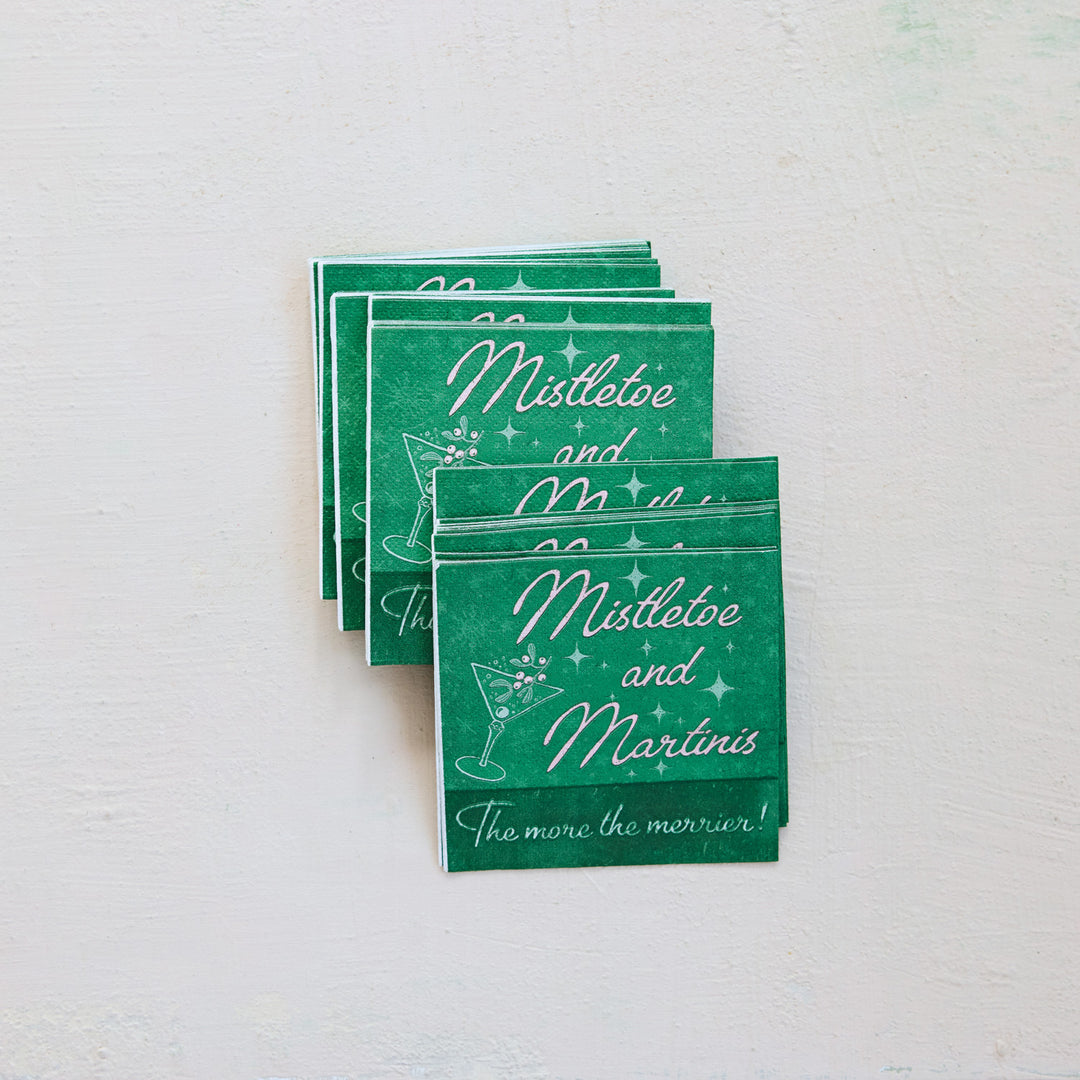 Mistletoe
and
The
Mistletoe
and
Martinis
The more the merrier!